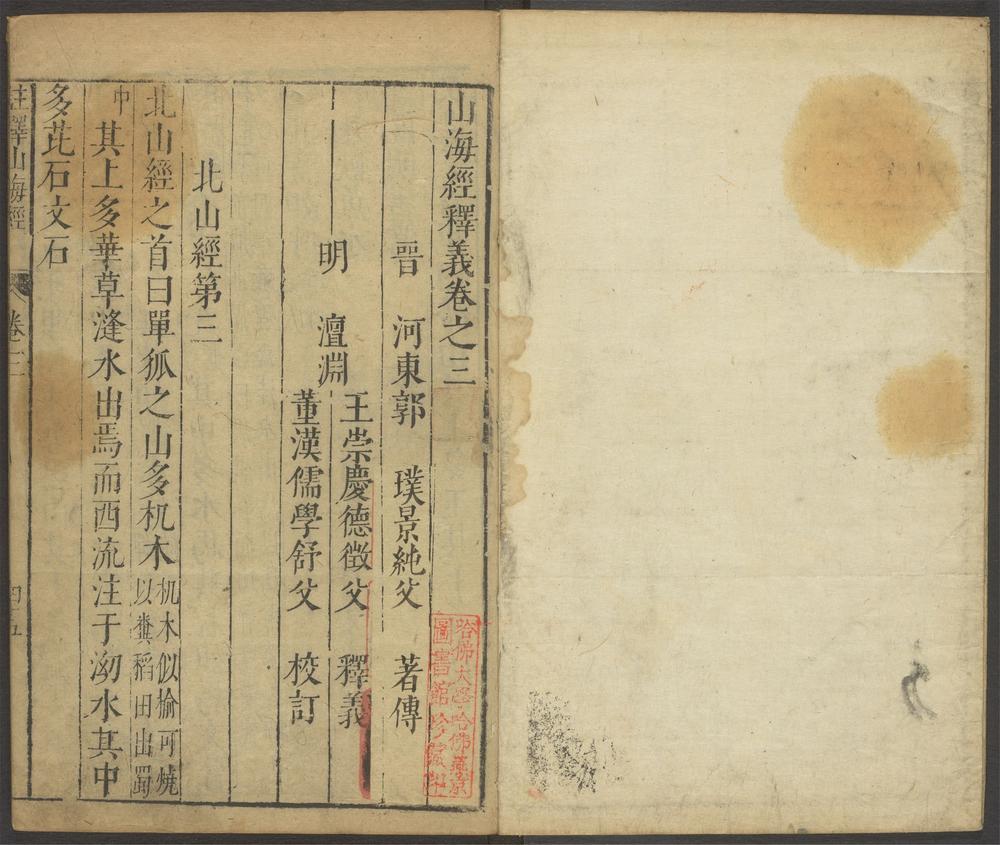 山海經釋義卷之三
晋 河東郭 璞景純父 著傳
明 澶淵 王崇慶德徵父 釋義
董漢儒學舒父 校訂
北山經第三
北山經之首曰單狐之山多机木机木似榆可燒以糞稻田出蜀
中其上多華草漨水出焉而西流注于泑水其中
多芘石文石
註釋山海經 卷三
哈佛大學哈佛燕京
圖書館珍藏印